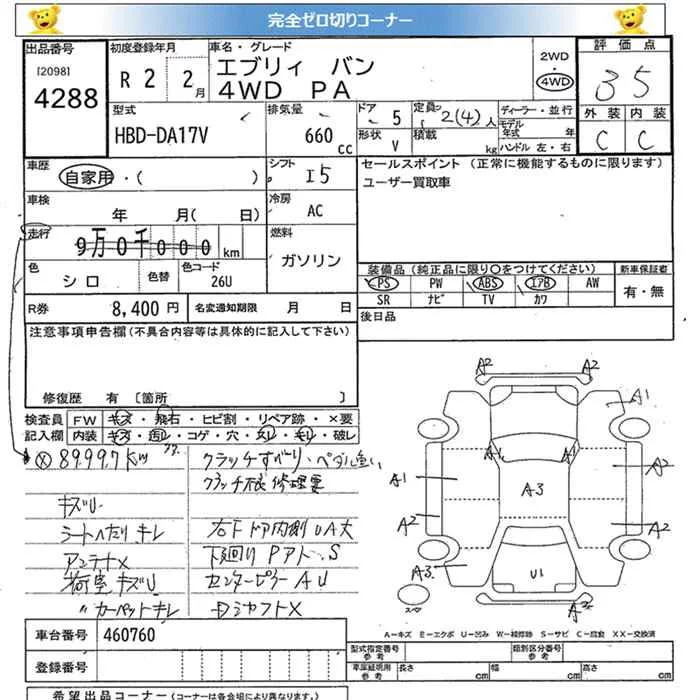 完全ゼロ切りコーナー
出品番号
[2098]
4288
初度登録年月
R 2 2月
車名・グレード
エブリィ バン
4WD PA
2WD
4WD
評価点
3.5
外装 内装
C C
型式
HBD-DA17V
排気量
660 cc
ドア 5
形状 V
定員 2(4)人
積載 kg
ディーラー・並行
モデル年式 年
ハンドル 左・右
車歴
自家用・( )
シフト
I5
セールスポイント (正常に機能するものに限ります)
ユーザー買取車
車検
年 月(日)
冷房
AC
走行
9万0千000 km
燃料
ガソリン
色
シロ
色替
色コード
26U
装備品(純正品に限り○をつけてください)
PS PW ABS エアB AW
SR ナビ TV カワ
新車保証書
有・無
R券 8,400円
名変通知期限 月 日
後日品
注意事項申告欄(不具合内容等は具体的に記入して下さい)
修復歴 有 〔箇所 〕
検査員記入欄
FW キズ・飛石・ヒビ割・リペア跡・×要
内装 キズ・汚レ・コゲ・穴・スレ・キレ・破レ
89997km
クラッチすべり・ペダル重い
クラッチ不良 修理要
キズU
シートヘたり キレ
アンテナ×
荷室 キズU
〃カーペットキレ
右Fドア内側UA大
下廻り Pアト、S
センターピラー AU
Dシャフト×
A2 A2
A1
A1 A1
A1 A3 A2
A2 A2
A3 U1
A2
A-キズ E-エクボ U-凹み W-補修跡 S-サビ C-腐食 XX-交換済
車台番号 460760
登録番号
型式指定番号 参考
類別区分番号 参考
車庫証明用 参考
長さ cm 幅 cm 高さ cm
希望出品コーナー (コーナーは各会場により異なります。)